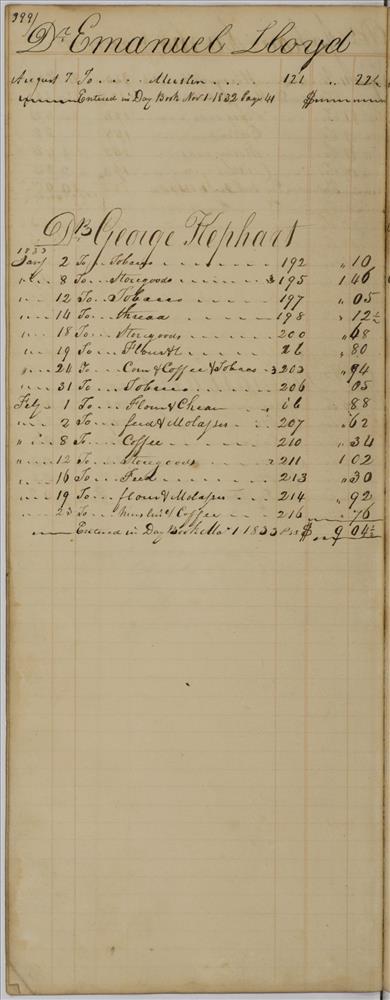 399
Dr Emanuel Lloyd
August 7 To .... Muslin .... 121 .. 22½
Entered in Day Book Nov 1 1832 Page 41 $
Dr George Kephart
1833
Jany 2 To .. Tobacco ....... 192 " 10
" .. 8 To .. Storegoods ....... 195 1 46
" .. 12 To .. Tobacco ....... 197 " 05
" .. 14 To .. thread ....... 198 " 12½
" .. 18 To .. Storegoods ..... 200 " 48
" .. 19 To .. Flour ..... " 80
" .. 24 To .. Corn & Coffee & Tobacco .. 203 " 94
" .. 31 To .. Tobacco ....... 206 05
Feby .. 1 To .. Flour & .... 88
" .. 2 To .. feed & Molasses .. 207 " 62
" .. 8 To .. Coffee ..... 210 " 34
" .. 12 To .. Storegoods ..... 211 1 02
.. 16 To .. Feed ..... 213 " 30
.. 19 To .. flour & Molasses .. 214 " 92
.. 23 To .. muslin & Coffee ... 216 " 76
Entered in Day Book Mar 1 1833 $ 9 04½